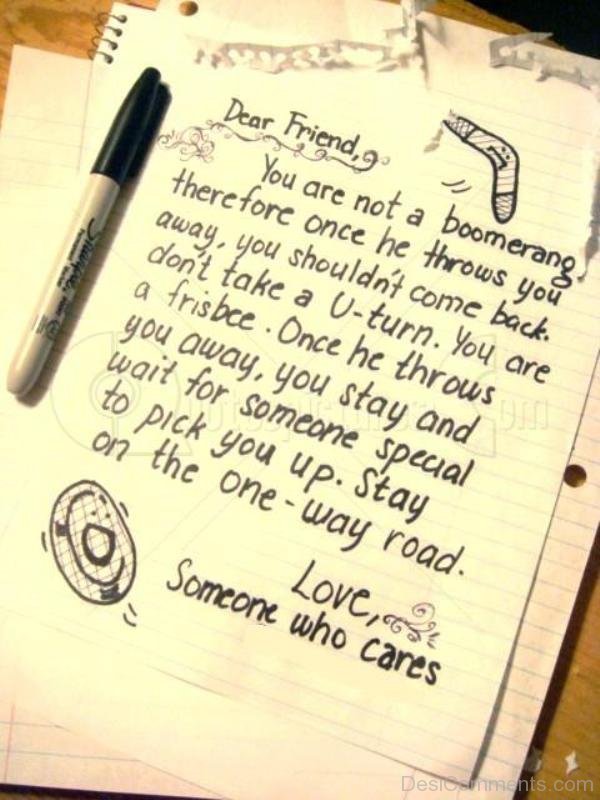 Dear Friend,
You are not a boomerang
therefore once he throws you
away, you shouldn't come back.
don't take a U-turn. You are
a frisbee. Once he throws
you away, you stay and
wait for someone special
to pick you up. Stay
on the one-way road.
Love,
Someone who cares
Sharpie
DesiComments.com